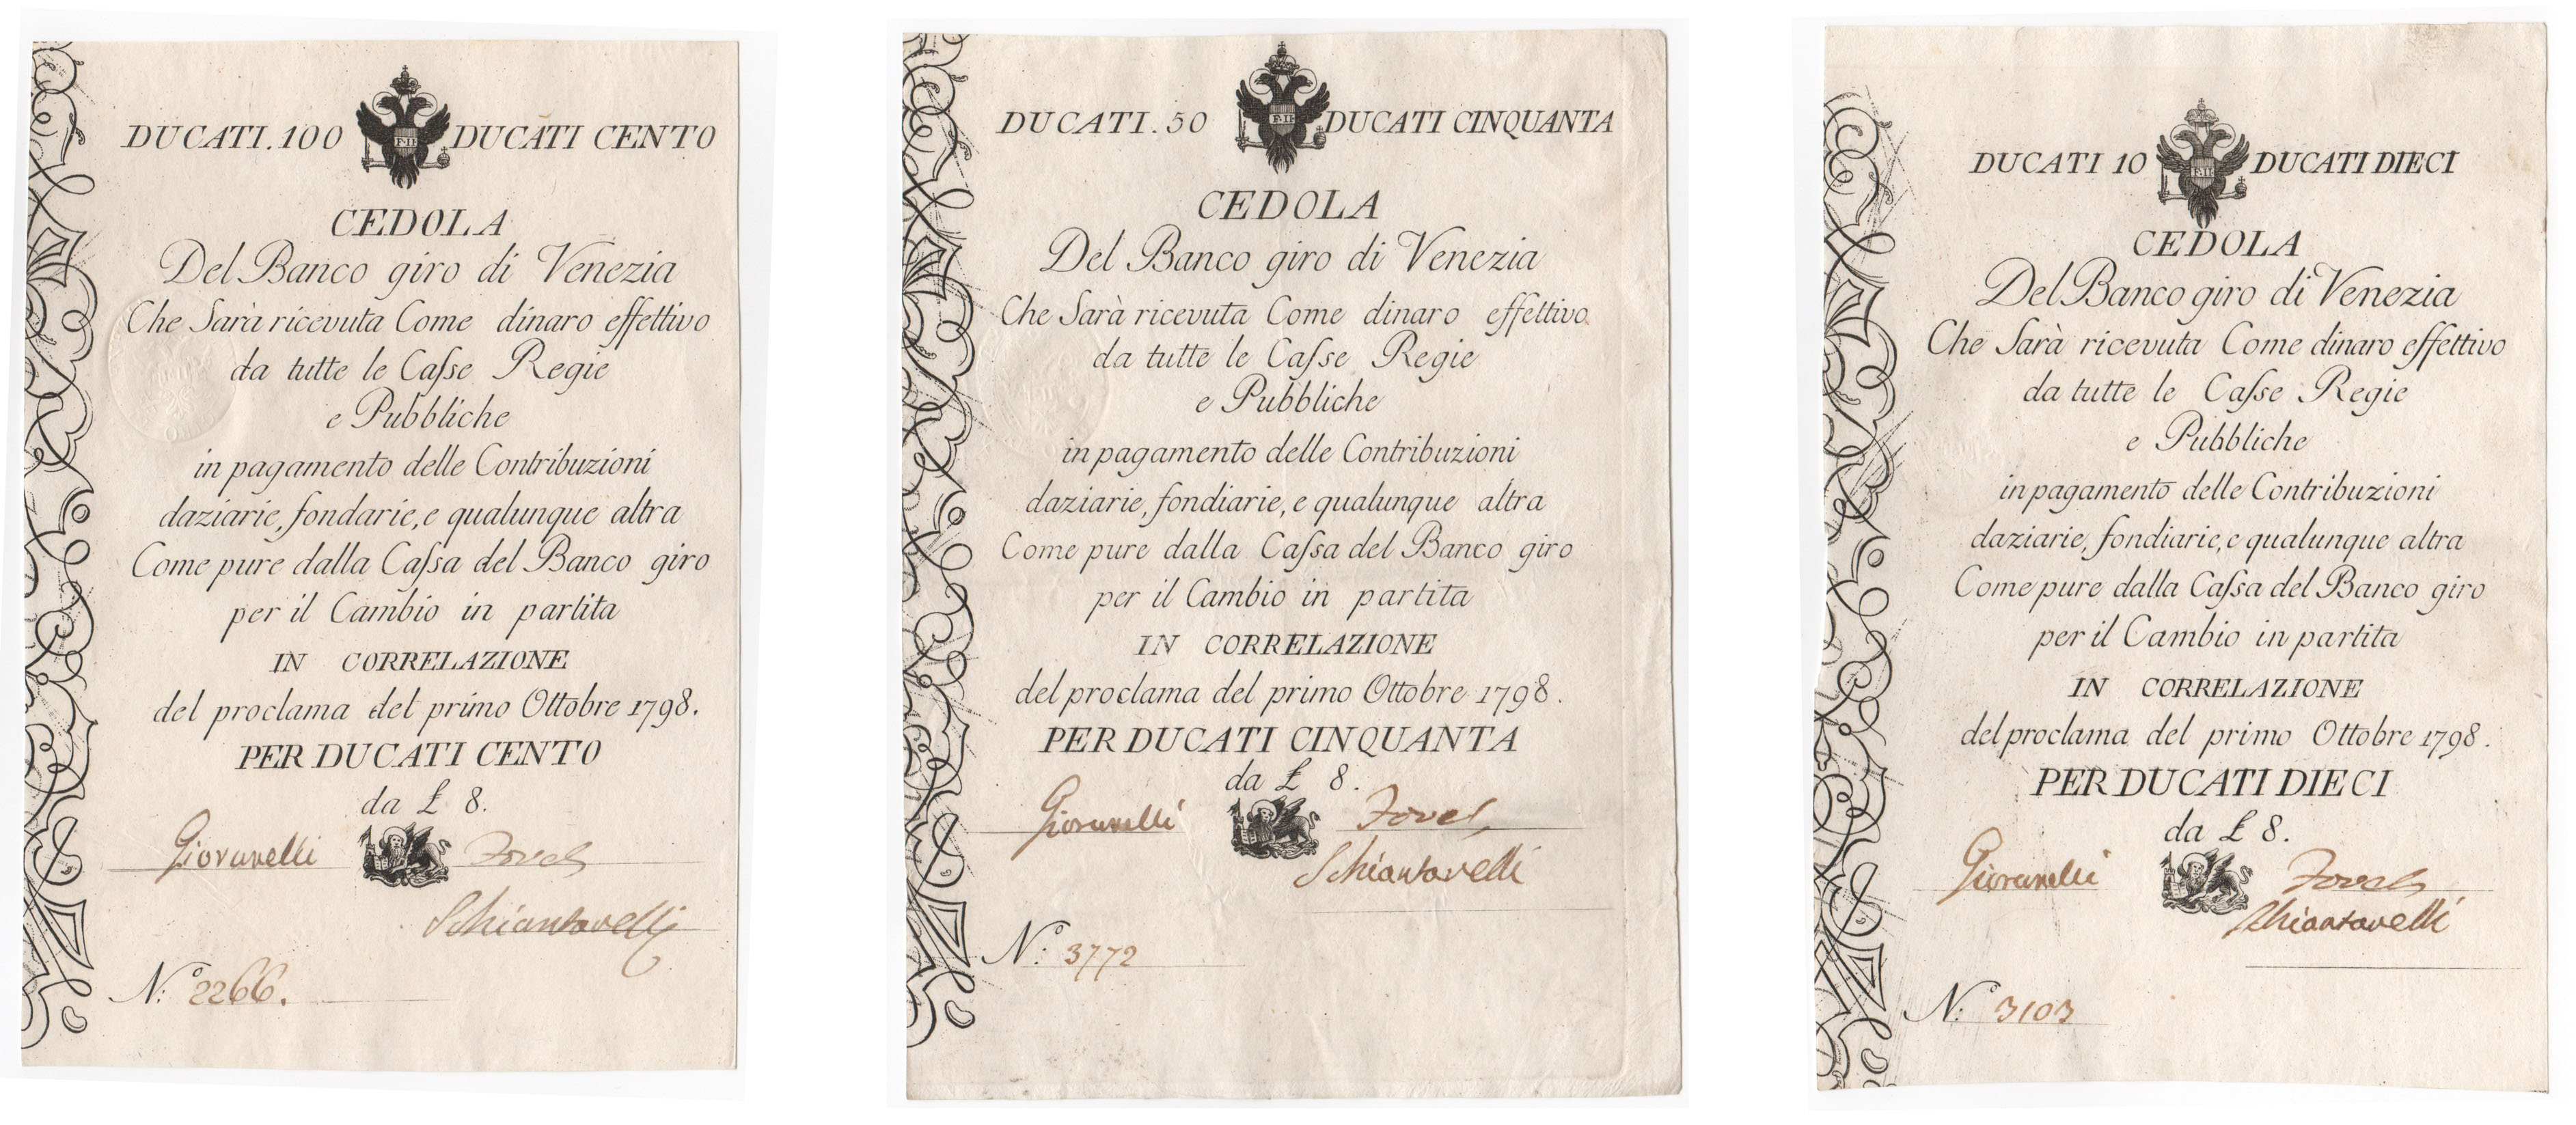 DUCATI.100 DUCATI CENTO
F.II
CEDOLA
Del Banco giro di Venezia
Che Sarà ricevuta Come dinaro effettivo
da tutte le Caſse Regie
e Pubbliche
in pagamento delle Contribuzioni
daziarie, fondarie, e qualunque altra
Come pure dalla Caſsa del Banco giro
per il Cambio in partita
IN CORRELAZIONE
del proclama del primo Ottobre 1798.
PER DUCATI CENTO
da £ 8.
Giovanelli Zoveli
Schiantarelli
N.º 2266.
DUCATI.50 DUCATI CINQUANTA
F.II
CEDOLA
Del Banco giro di Venezia
Che Sarà ricevuta Come dinaro effettivo
da tutte le Caſse Regie
e Pubbliche
in pagamento delle Contribuzioni
daziarie, fondiarie, e qualunque altra
Come pure dalla Caſsa del Banco giro
per il Cambio in partita
IN CORRELAZIONE
del proclama del primo Ottobre 1798.
PER DUCATI CINQUANTA
da £ 8.
Giovanelli
Schiantarelli
N.º 3772
DUCATI 10 DUCATI DIECI
F.II
CEDOLA
Del Banco giro di Venezia
Che Sarà ricevuta Come dinaro effettivo
da tutte le Caſse Regie
e Pubbliche
in pagamento delle Contribuzioni
daziarie, fondiarie, e qualunque altra
Come pure dalla Caſsa del Banco giro
per il Cambio in partita
IN CORRELAZIONE
del proclama del primo Ottobre 1798.
PER DUCATI DIECI
da £ 8.
Giovanelli
Schiantarelli
N.º 3103